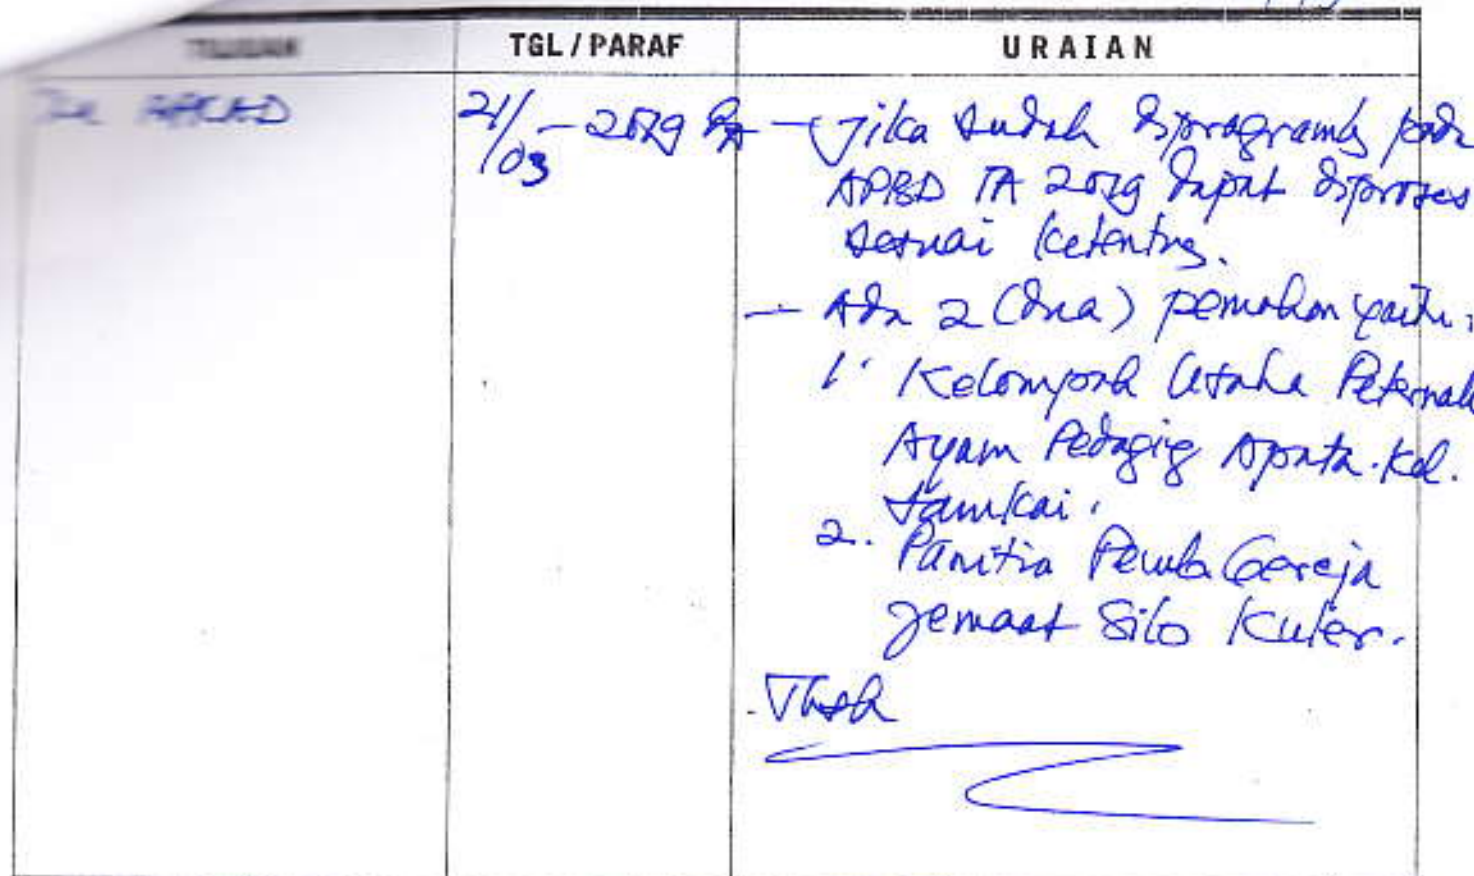 TGL / PARAF
URAIAN
21/03 - 2019
- Jika sudah diprogramkan pada
APBD TA 2019 dapat diproses
sesuai ketentuan.
- Ada 2 (dua) pemohon yaitu :
1. Kelompok Usaha Peternak
Ayam Pedaging Kel.
2. Panitia Pemb. Gereja
Jemaat Silo